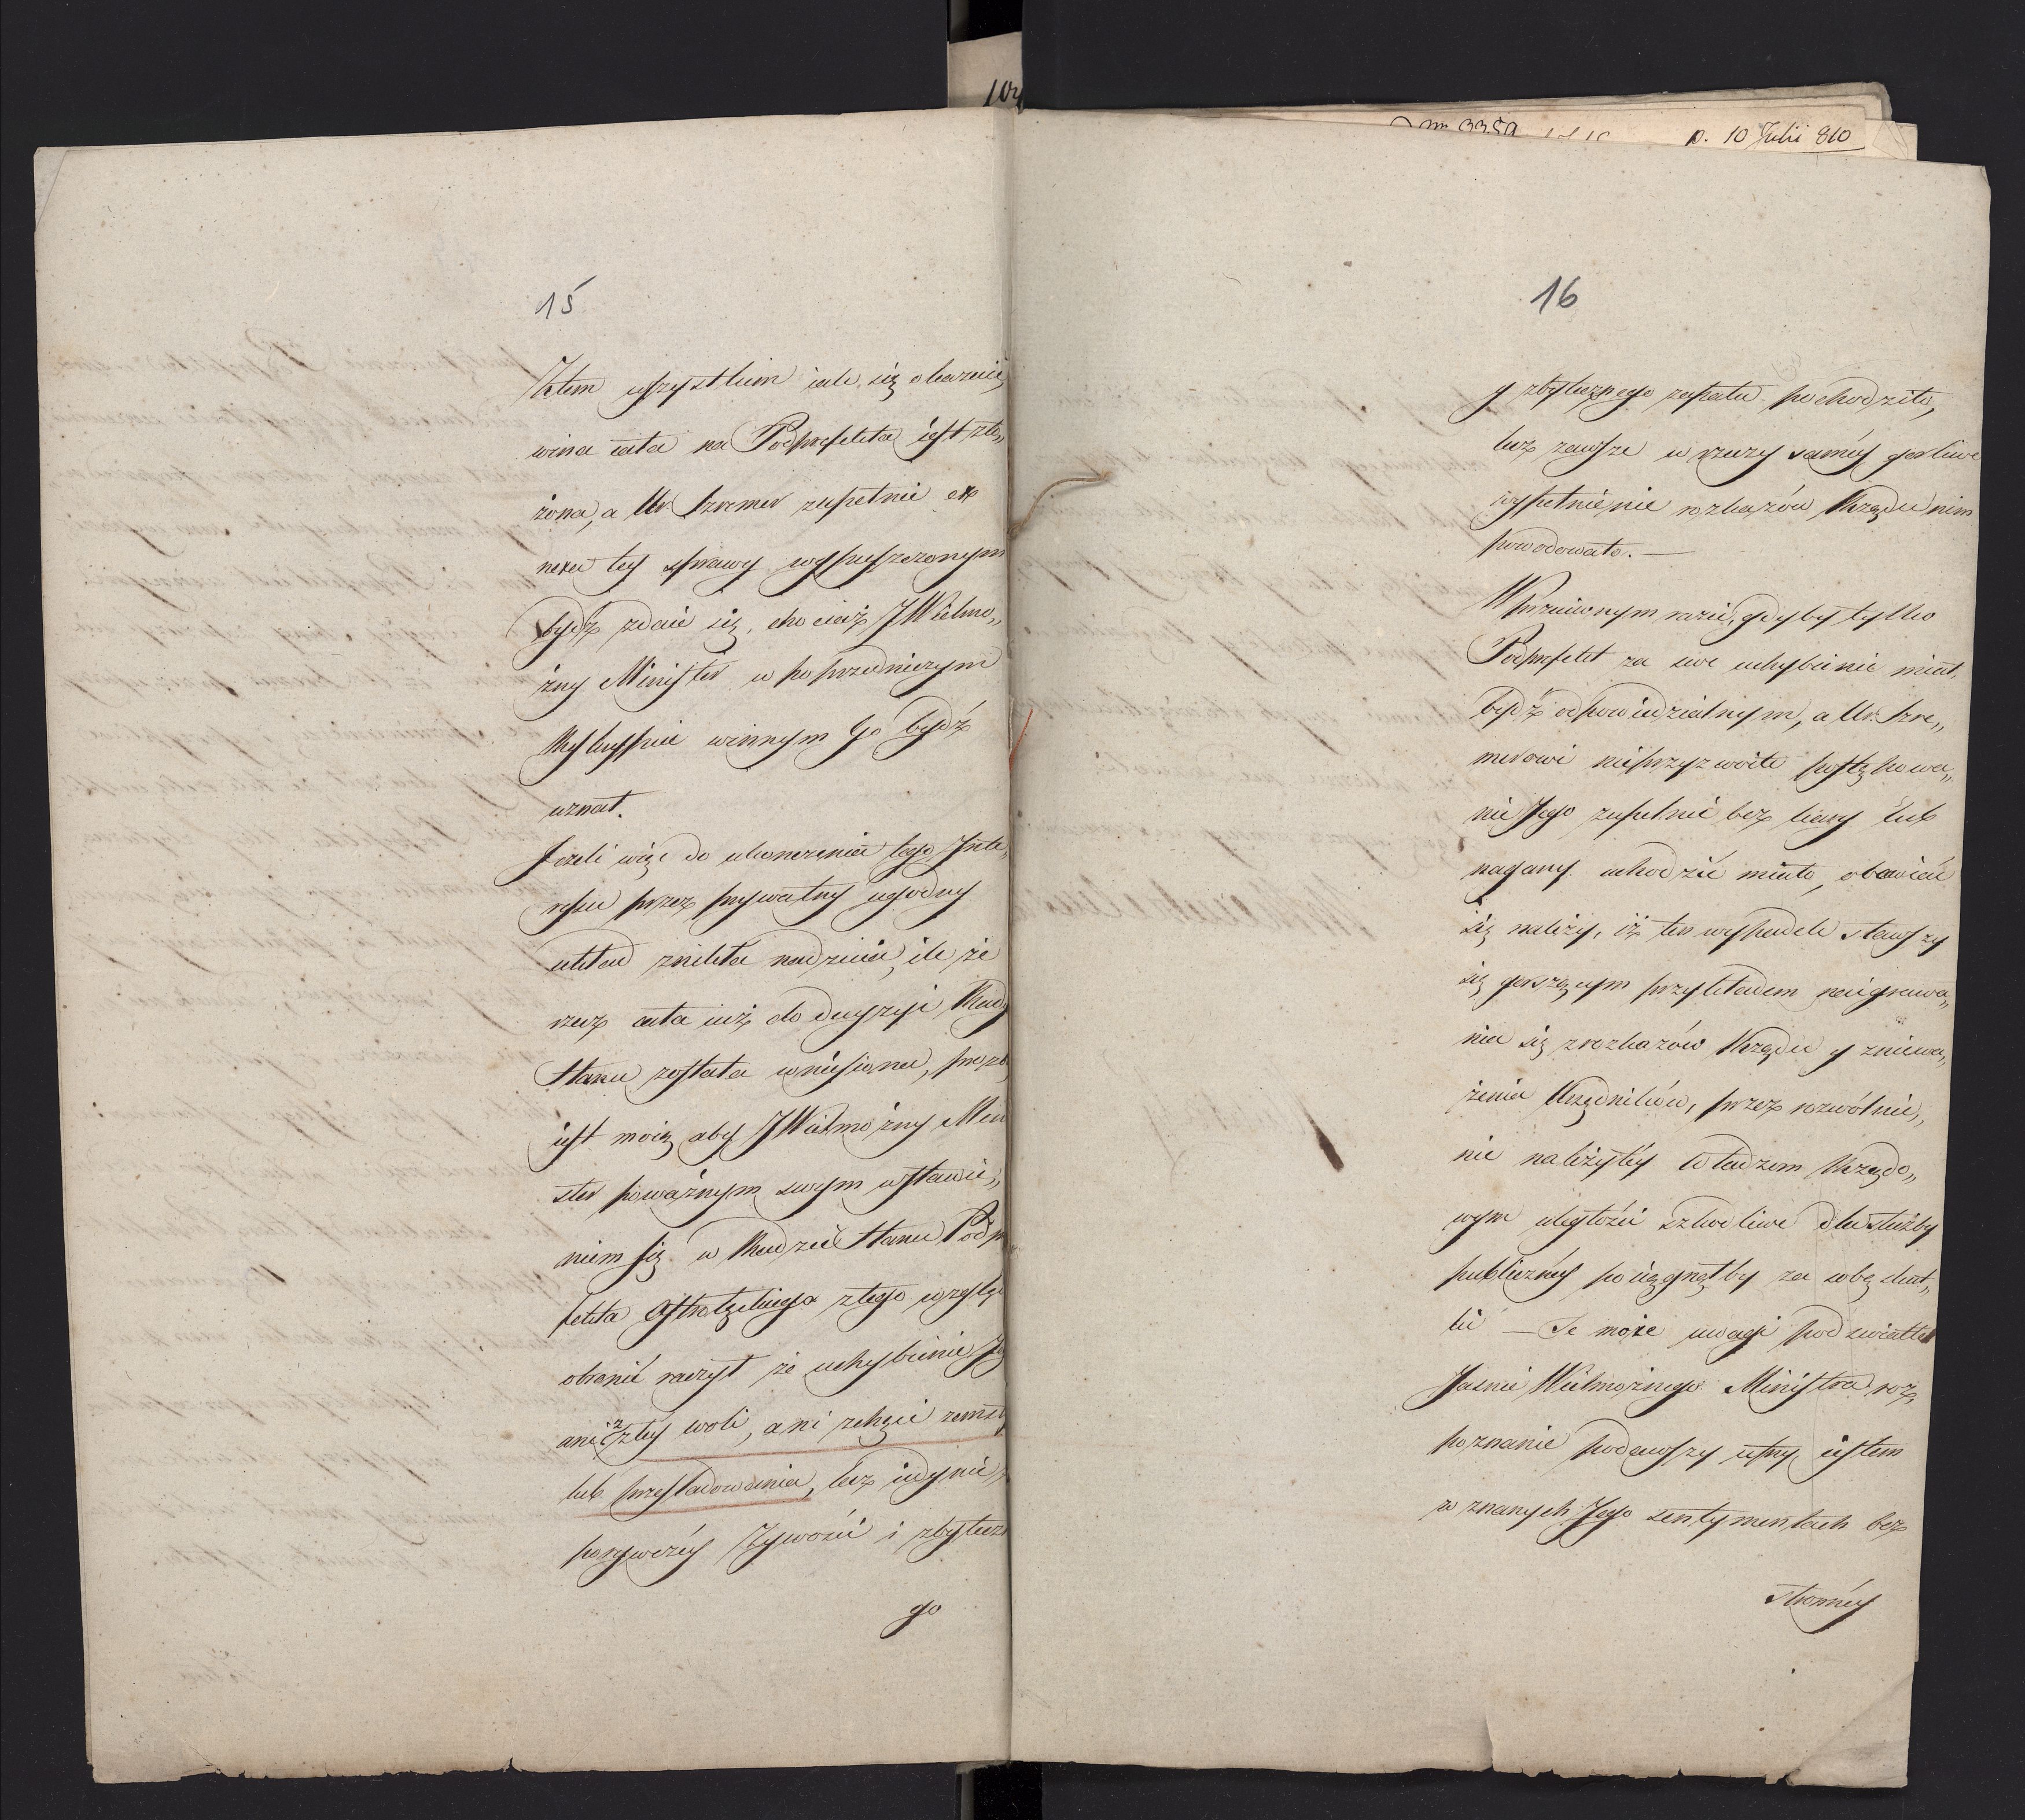 104
nro 3359
p. 10 Julii 810
15
Zatem wszystkiem iak się okazuie,
wina cała na Podprefekta iest zło„
żona, a Ur. Szremer zupełnie ex
nexu tey sprawy wypuszczonym
bydź zdaie się, chociaż JWielmo„
żny Minister w poprzedniczym
Reskrypcie winnym Go bydź
uznał.
Jeżeli więc do ukonczenia tego Inte„
ressu przez prywatny ugodny
układ znikła nadzieia, ile że
rzecz cała iuż do decyzyi Rady
Stanu została wniesiona, prozbą
iest moią aby JWielmożny Mini
ster poważnym swym wstawie„
niem się w Radzie Stanu Podpre
fekta Ostrołęckiego z tego względu
obronić raczył że uchybienie Jego
ani z złey woli, ani z chęci zemsty
lub prześladowania, lecz iedynie z
porywczéy Zywości i zbyteczne
go
16
y zbytecznego zapału pochodziło,
lecz zawsze w rzeczy saméy gorliwe
wypełnienie rozkazów Rządu nim
powodowało. —
W przeciwnym razie, gdyby tylko
Podprefekt za swe uchybienie miał
bydź odpowiedzialnym, a Ur. Szre„
merowi nieprzyzwoite postępowa„
nie Jego zupełnie bez kary lub
nagany uchodzić miało, obawiać
się należy, iż ten wypadek stawszy
się gorszącym przykładem naigrawa„
nia się z rozkazów Rządu y zniewa„
żenia Urzędników, przez rozwolnie„
nie należytéy Władzom Rządo„
wym uległości szkodliwe dla służby
publicznéy pociągnąłby za sobą skut„
ki — Te moie uwagi pod światłe
Jaśnie Wielmożnego Ministra roz„
poznanie podawszy ufny iestem
w znanych Jego sentymentach bez
stronnéy